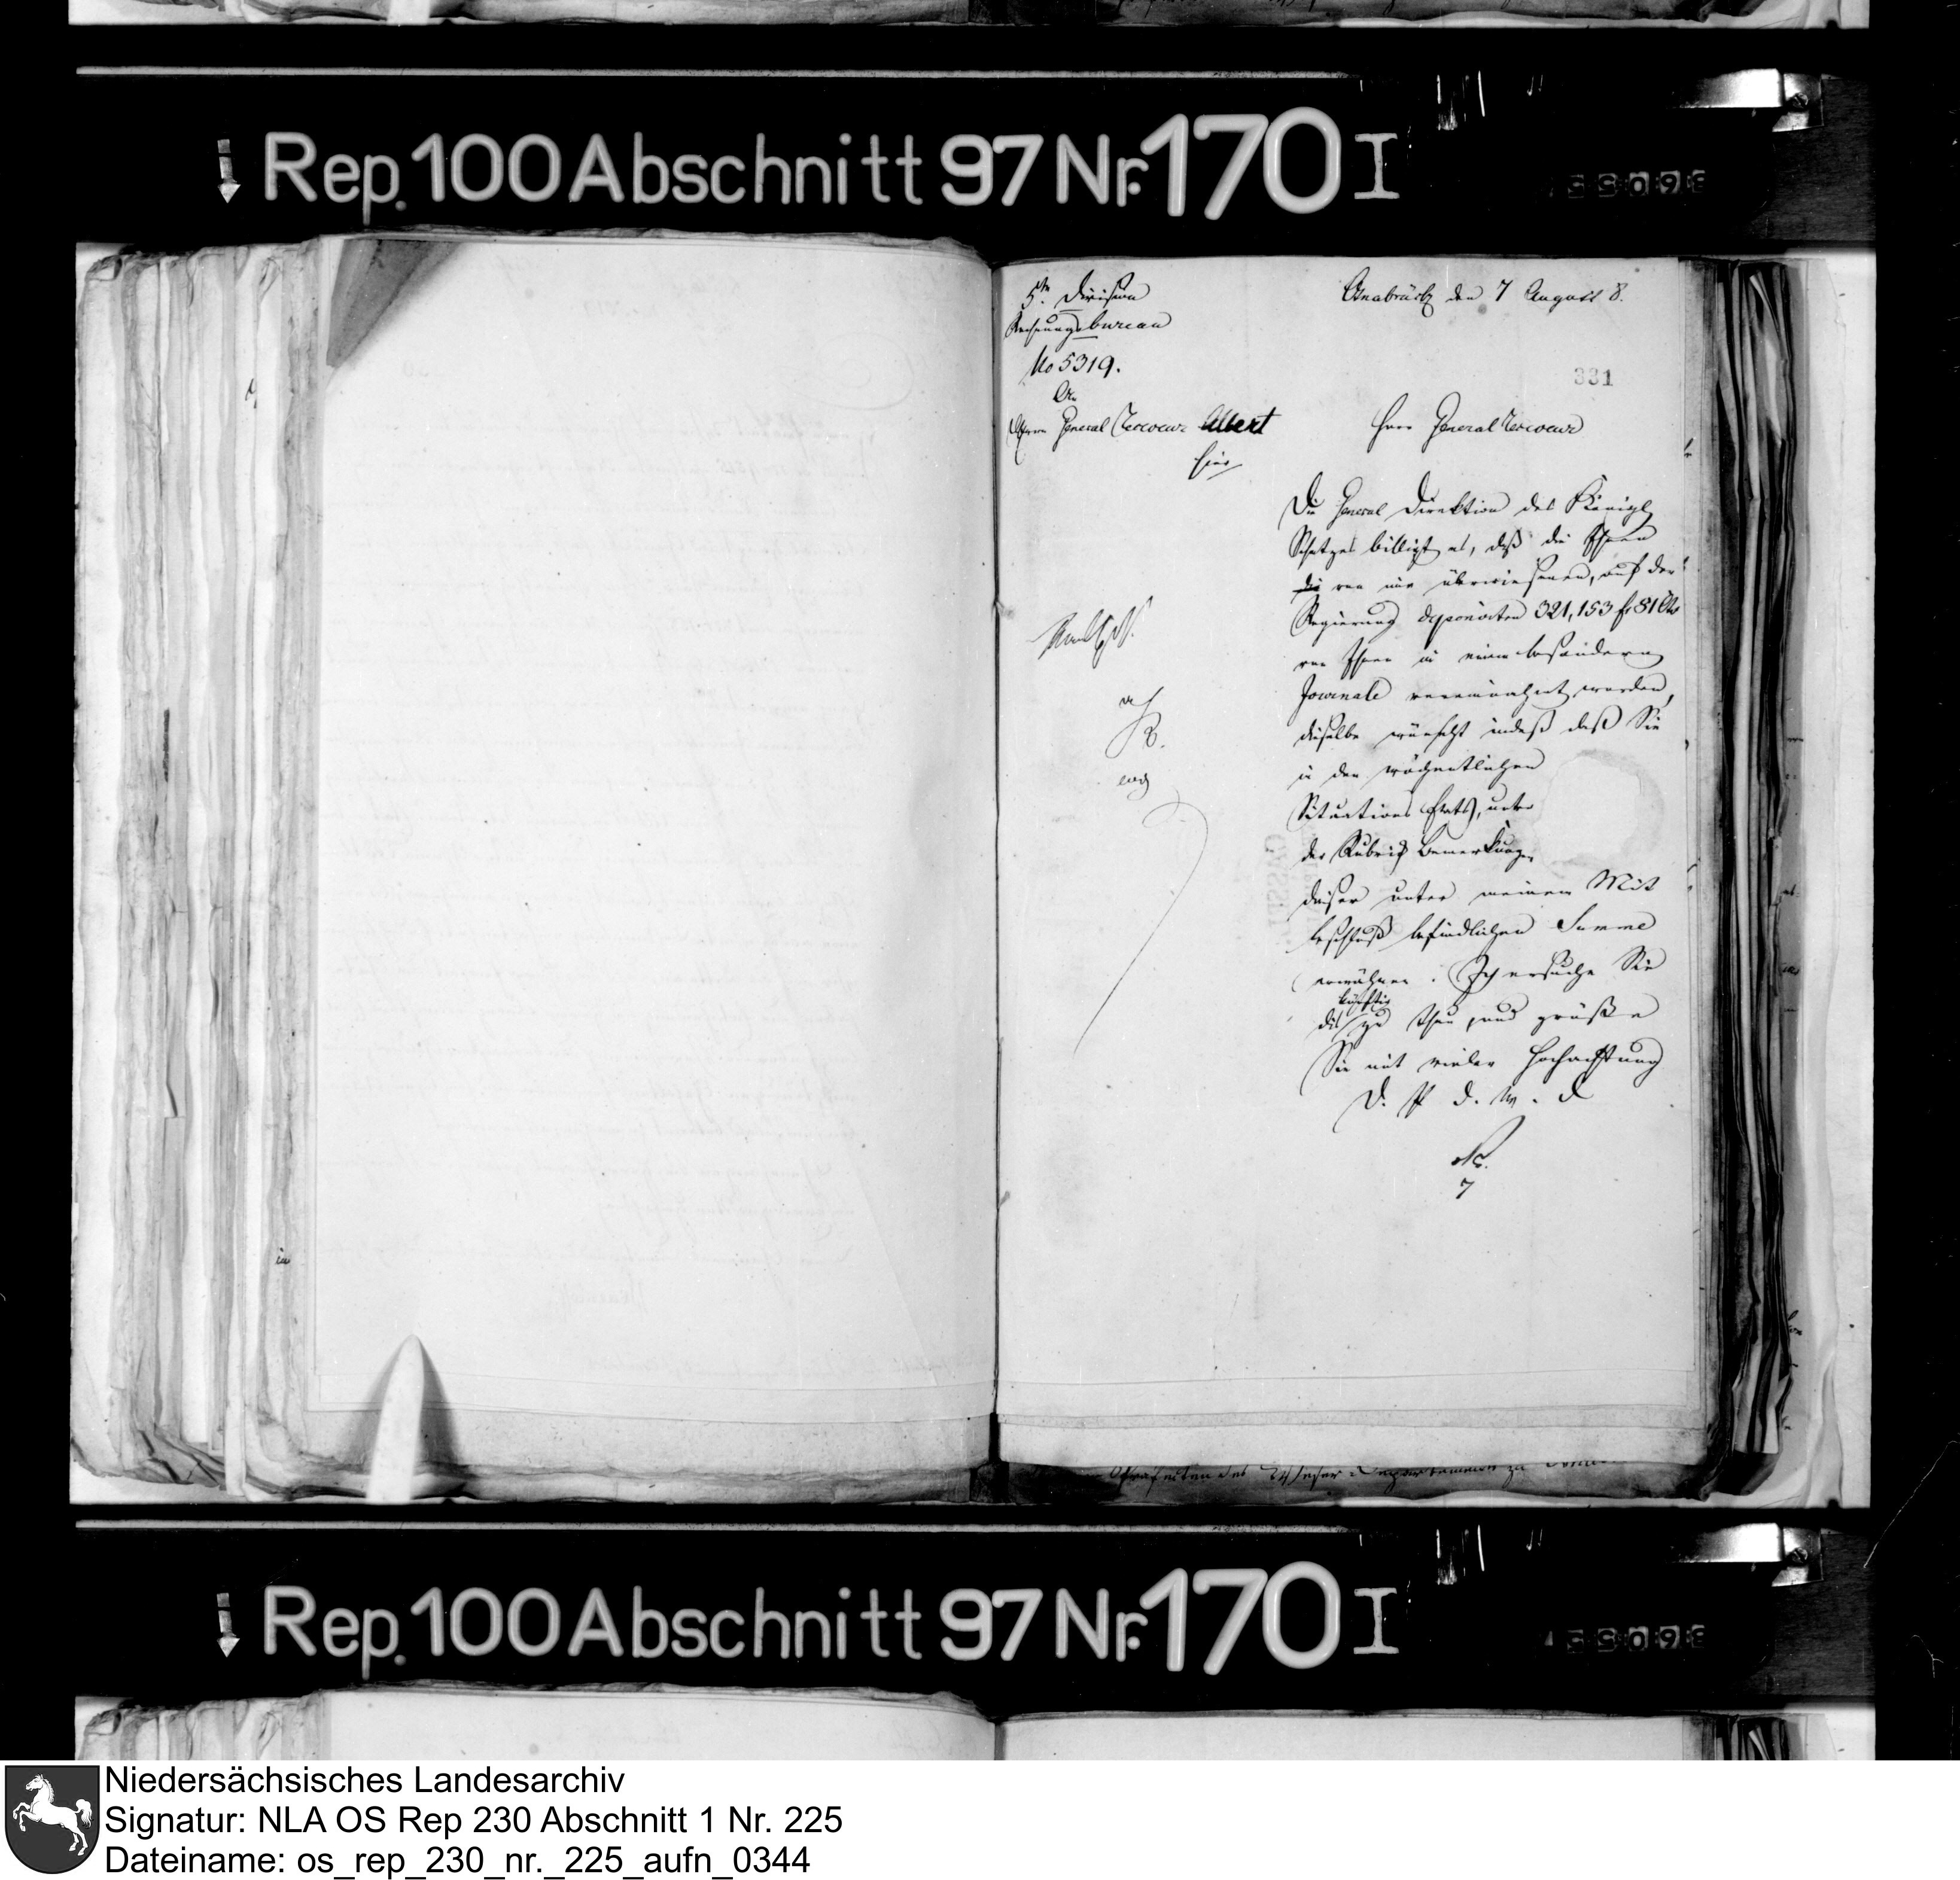 Rep. 100 Abschnitt 97 Nr. 170 I
5te Division
Rechnungsbureau
No 5319.
An
Herrn General Receveur Albert
hier
Osnabrück den 7 August 8.
331
Herr General Receveur
Die General Direktion des Königl
Schatzes billigt es, daß die Ihnen
die von mir überwiesenen, auf der
Regierung deponirten 321,153 fr 81 Cts
von Ihnen in einem besondern
Journale vereinnahmt worden,
dieselbe wünscht indeß daß Sie
in den wöchentlichen
Situations Etats, unter
der Rubrik Bemerkungen
dieser unter meinem Mit
beschluß befindlichen Summe
erwähnen. Ich ersuche Sie
künftig
dies zu thun, und grüße
Sie mit vieler Hochachtung
D. P d. W. D
7
in
Rep. 100 Abschnitt 97 Nr. 170 I
Niedersächsisches Landesarchiv
Signatur: NLA OS Rep 230 Abschnitt 1 Nr. 225
Dateiname: os_rep_230_nr._225_aufn_0344